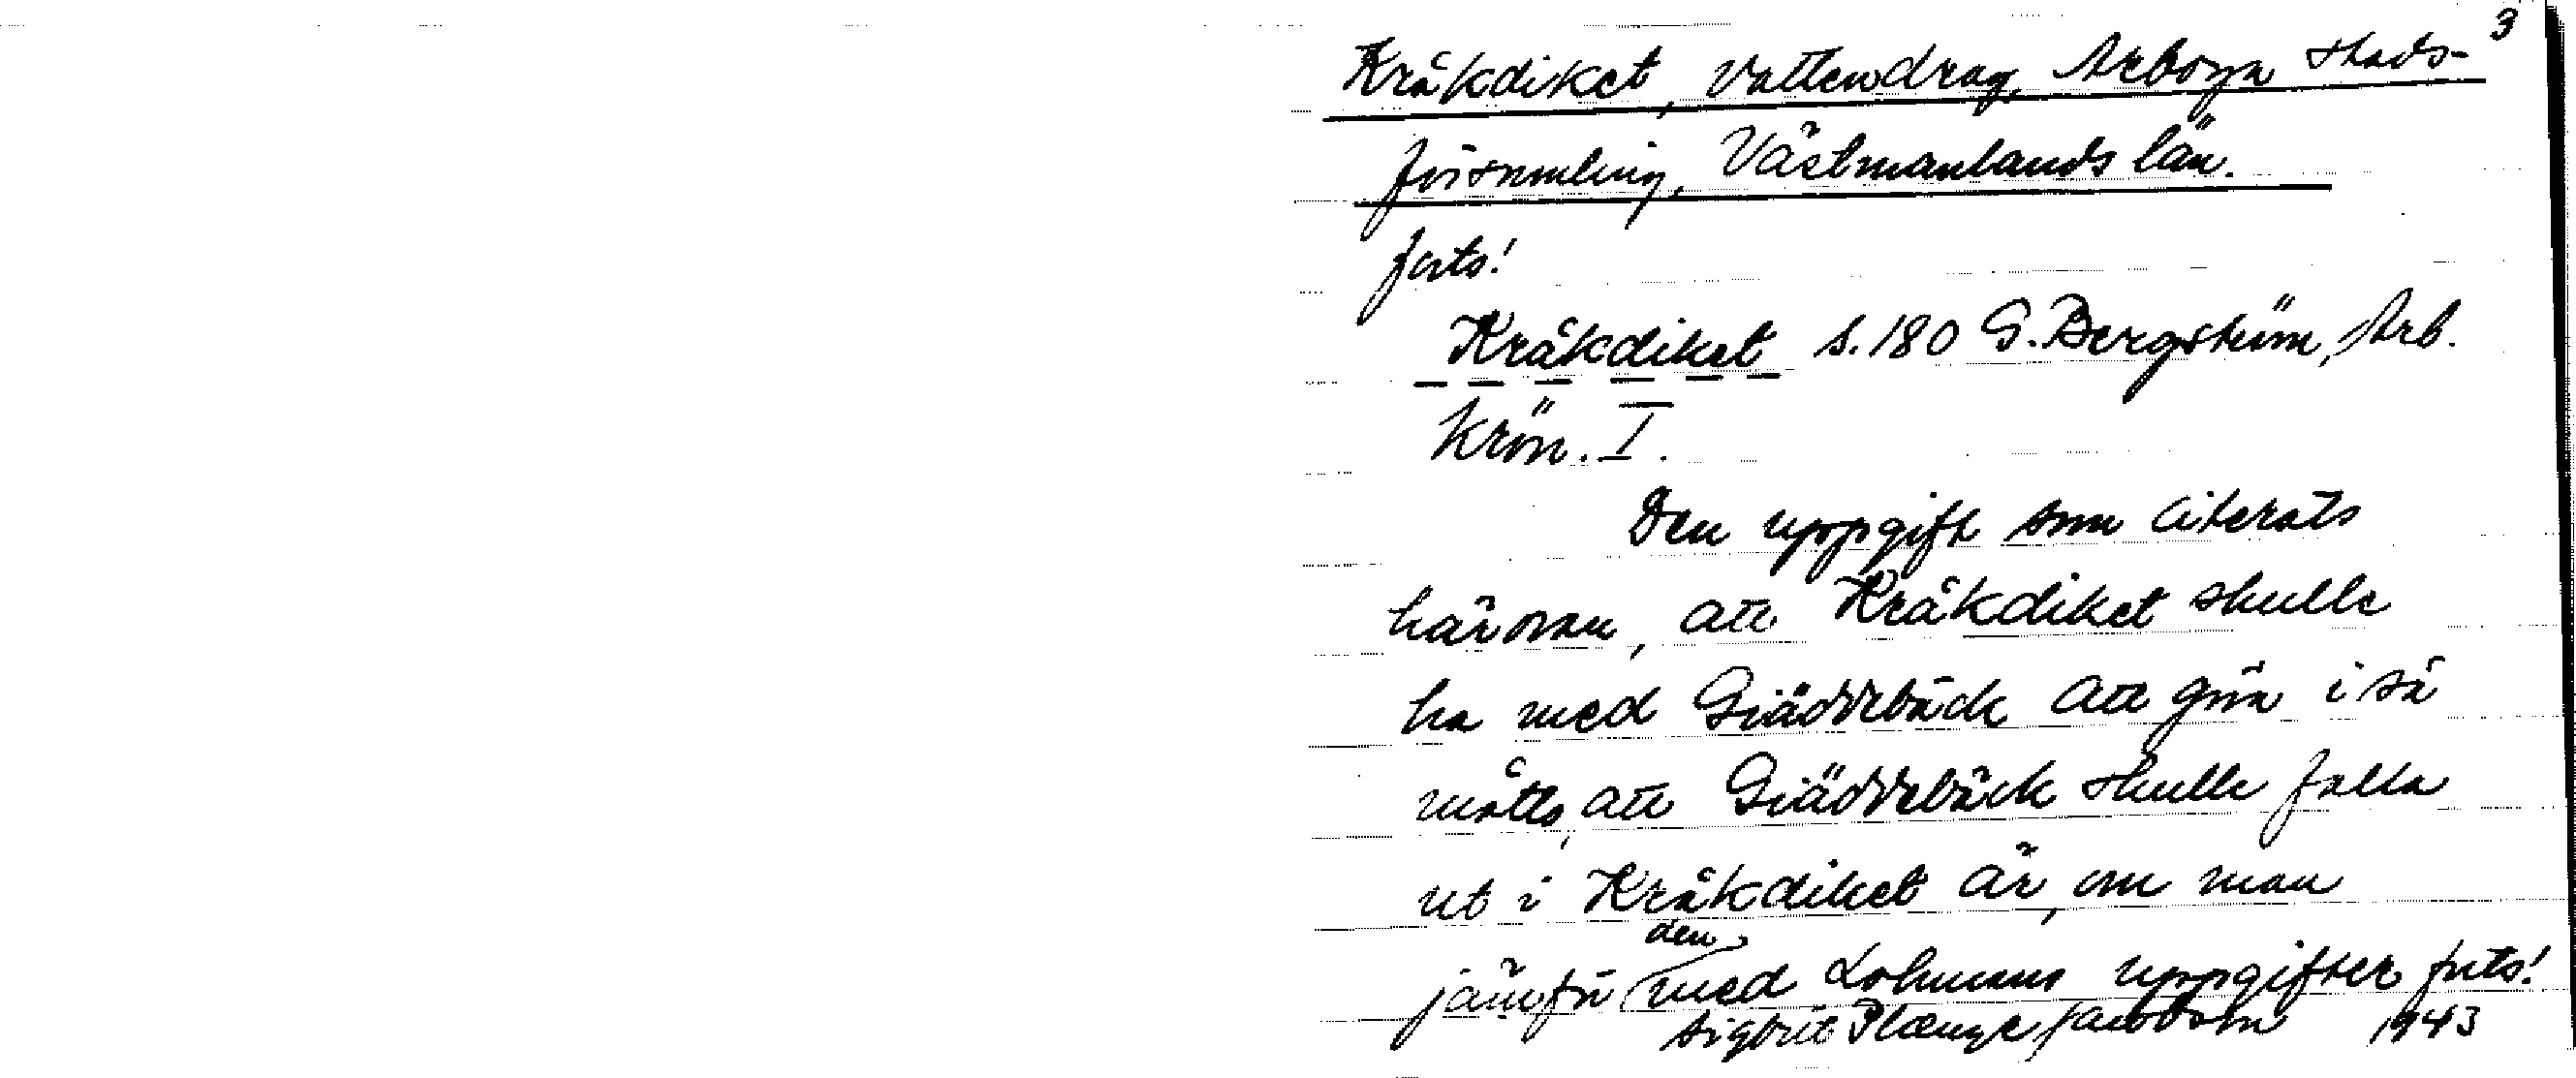 3
Kråkdiket, vattendrag, Arboga stads-
församling, Västmanlands län.
forts!
Kråkdiket s. 180 G. Bergström, Arb.
krön. I.
Den uppgift som citerats
här ovan, att Kråkdiket skulle
ha med Giäddebäck att göra i så
måtto, att Giäddebäck skulle falla
ut i Kråkdiket är, om man
jämför den med Lohmans uppgifter forts!
Sigbrit Plænge Jacobson 1943